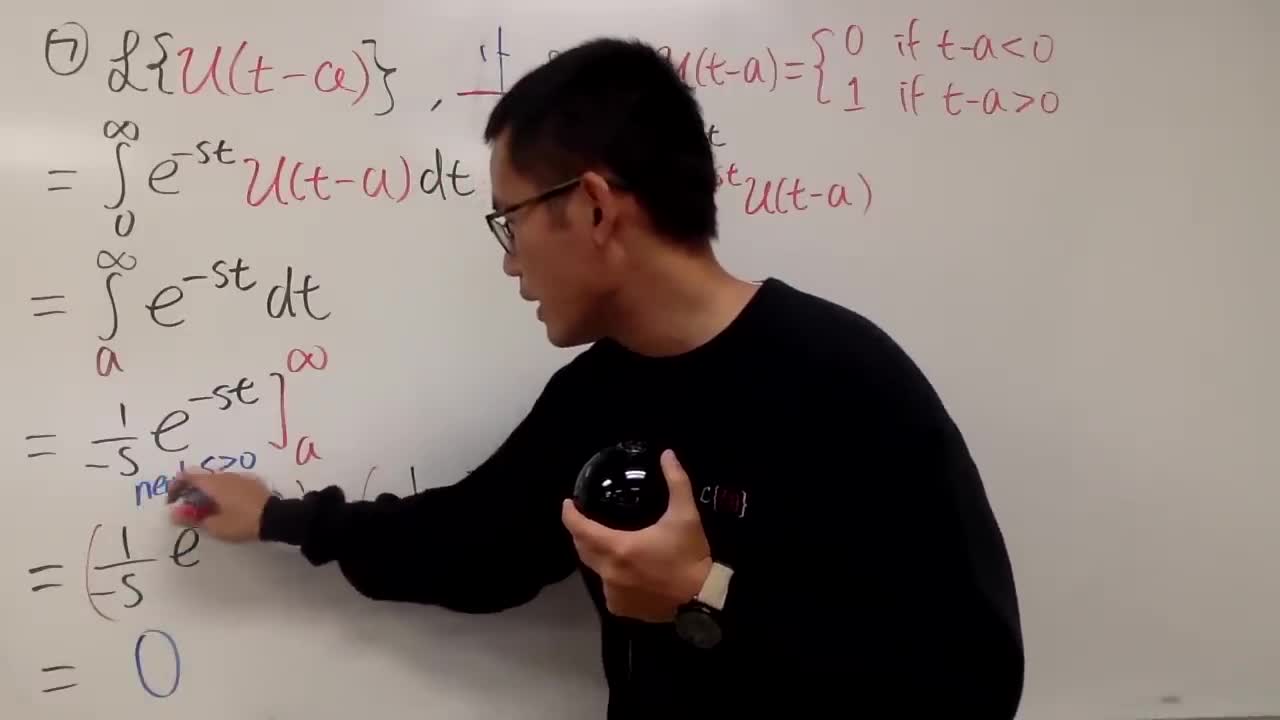 ⑦ ℒ{𝒰(t-a)}, if 𝒰(t-a) = { 0 if t-a<0
1 if t-a>0
= ∫₀^∞ e^{-st} 𝒰(t-a) dt
st 𝒰(t-a)
= ∫ₐ^∞ e^{-st} dt
= 1/-s e^{-st} ]ₐ^∞
s>0
= ( 1/-s e
= 0